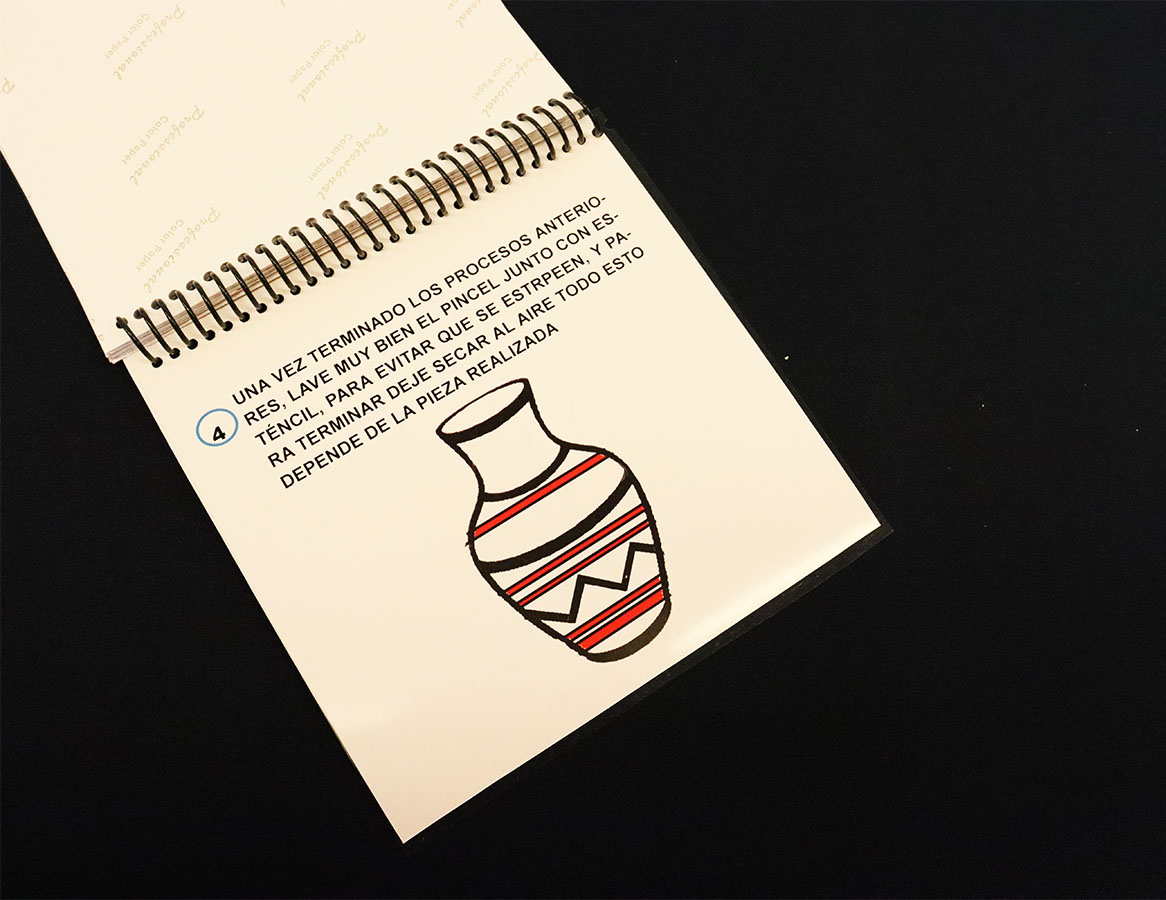 Professional
Color Paper
Professional
Color Paper
Professional
Color Paper
Professional
Color Paper
Professional
Color Paper
Professional
Color Paper
4
UNA VEZ TERMINADO LOS PROCESOS ANTERIO-
RES, LAVE MUY BIEN EL PINCEL JUNTO CON ES-
TÉNCIL, PARA EVITAR QUE SE ESTRPEEN, Y PA-
RA TERMINAR DEJE SECAR AL AIRE TODO ESTO
DEPENDE DE LA PIEZA REALIZADA